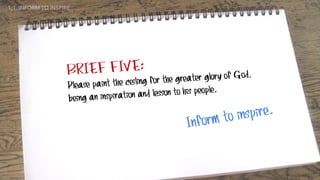 1.1. INFORM TO INSPIRE
BRIEF FIVE:
Please paint the ceiling for the greater glory of God,
being an inspiration and lesson to his people.
Inform to inspire.